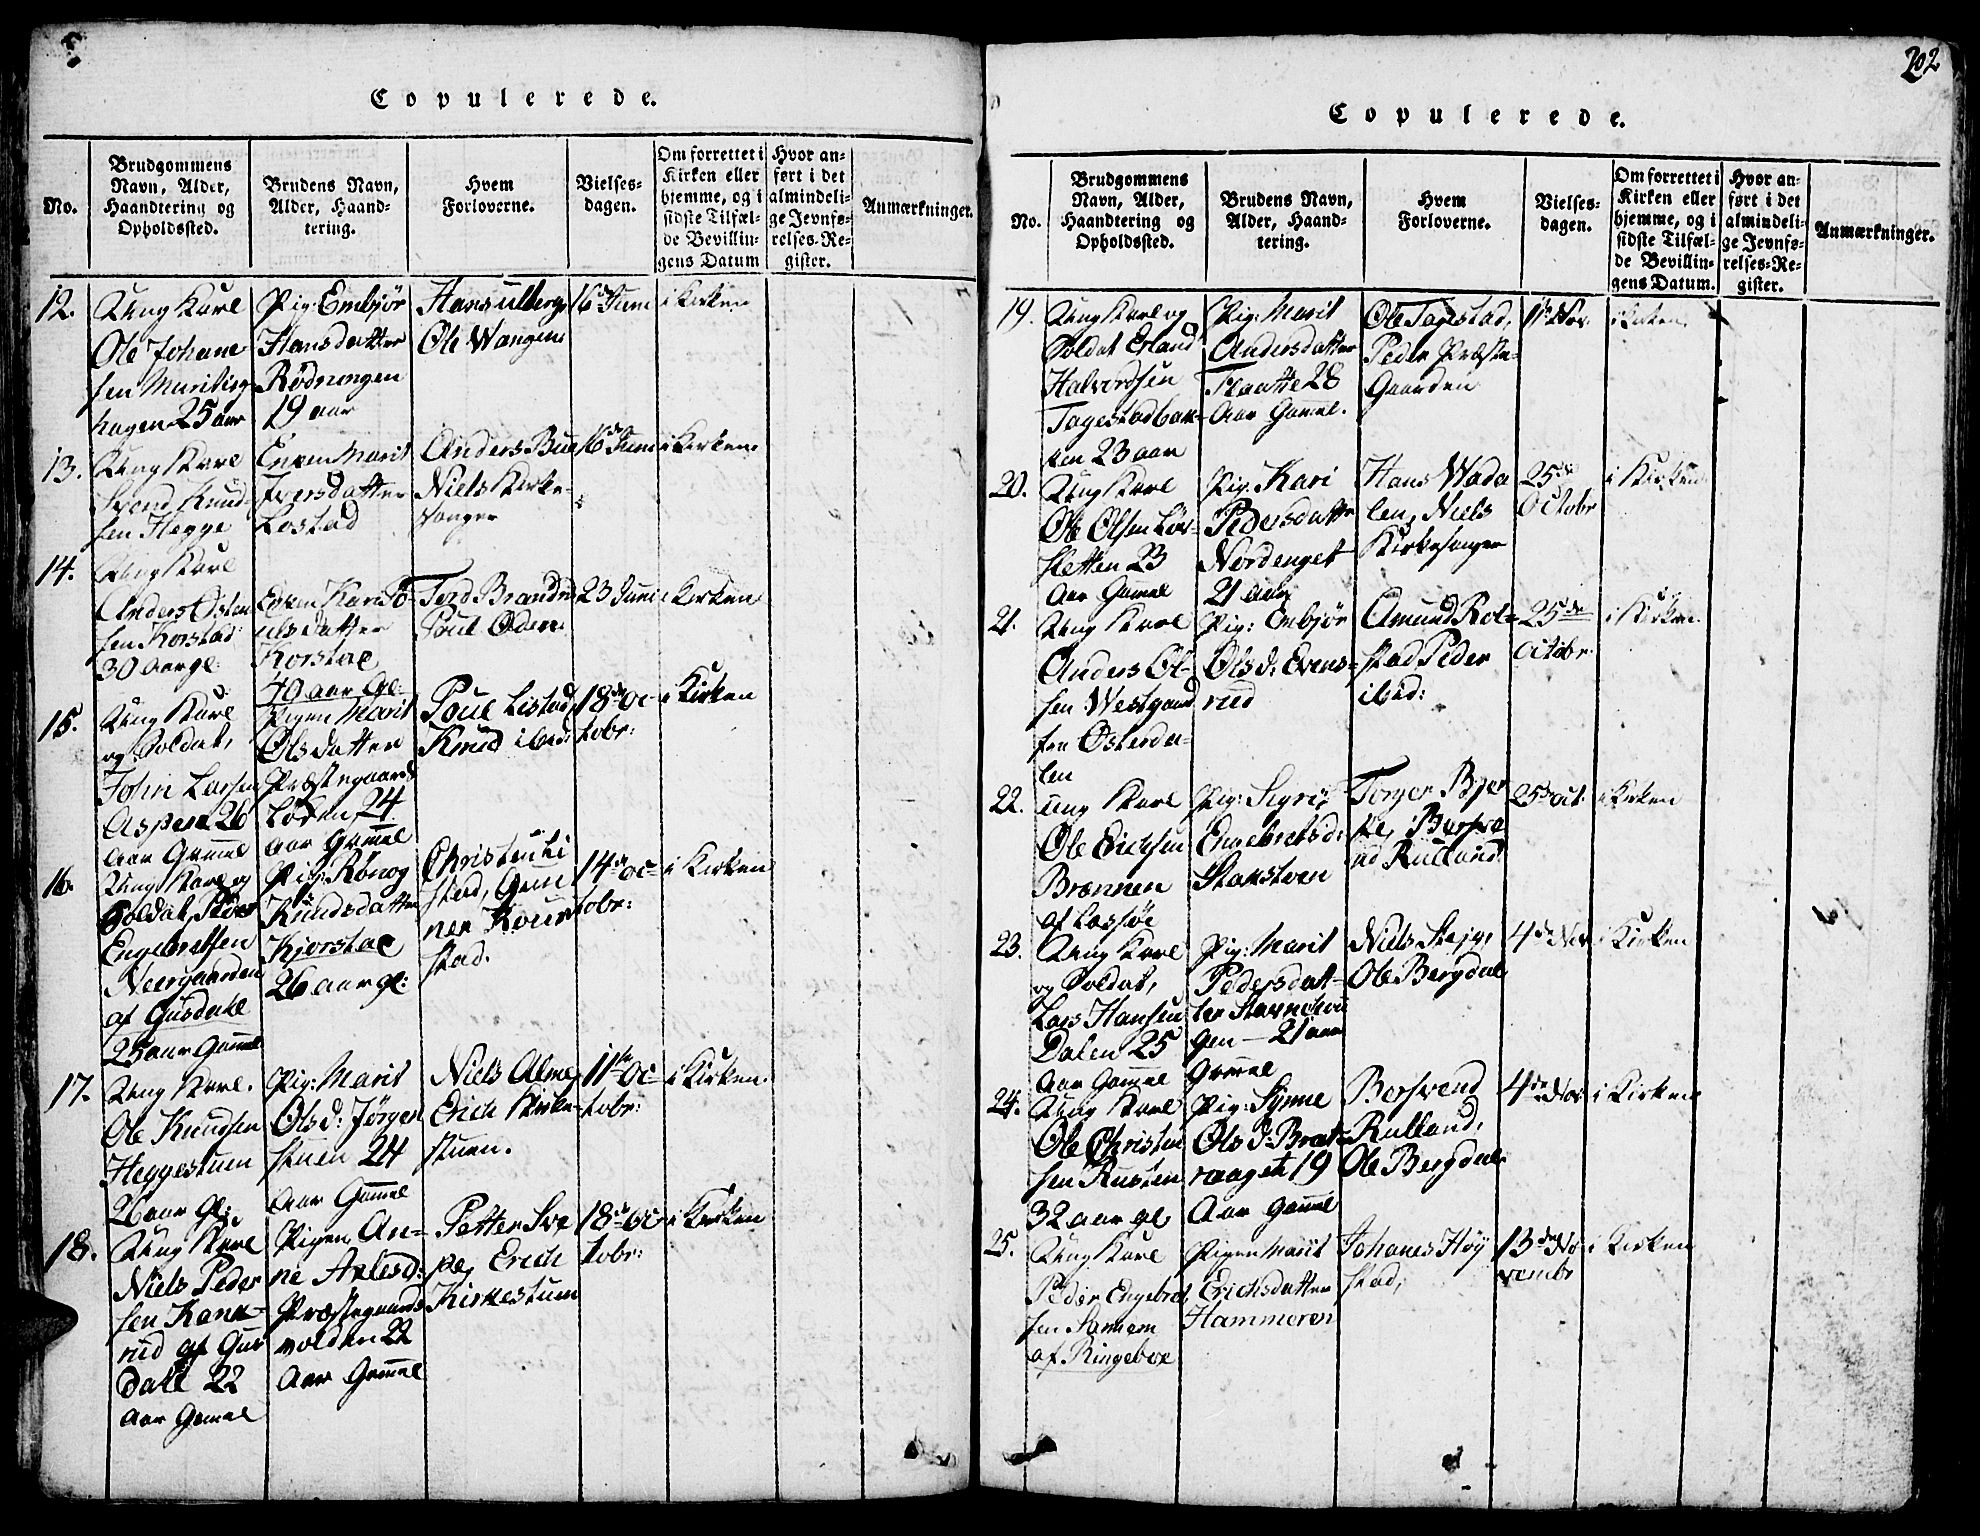 Copulerede.
No.
Brudgommens Navn, Alder, Haandtering og Opholdssted.
Brudens Navn, Alder, Haandtering.
Hvem Forloverne.
Vielsesdagen.
Om forrettet i Kirken eller hjemme, og i sidste Tilfælde Bevillingens Datum
Hvor anført i det almindelige Jevnførelses-Register.
Anmærkninger.
12.
Ung Karl
Ole Johane
sen
hagen 25 aar
Pig: Embjør
Hansdatter
Rødningen
19 aar
Hans Ulberg
Ole Wangen
16de Juni
i Kirken
13.
Ung Karl
Svend Knud
sen Hegge
Enken Marit
Iversdatter
Lostad
Anders Bue
Niels Kirke-
sanger
16de Juni
i Kirken
14.
Ung Karl
Anders Østen
sen Korstad
30 Aar gl:
Enken Kari
datter
Korstad
40 aar Gl.
Tord Brandr
Poul Øden
23 Juni
i Kirken
15.
Ung Karl
og Soldat,
John Larsen
Aspen 26
Aar Gamel
Pigen Marit
Olsdatter
Præstegaards
Løken, 24
aar Gamel
Poul Listad,
Knud ibid:
18de Oc-
tobr:
i Kirken
16.
Ung Karl og
Soldat, Peder
Engebretsen
Neergaarden
af Gusdale
25 aar Gamel
Pig: Rønog
Knudsdatter
Kjorstad
26 aar gl:
Christen Li
stad,
ner
stad.
14de Oc-
tobr:
i Kirken
17.
Ung Karl.
Ole Knudsen
Heggestuen
26 aar gl:
Pig: Marit
Olsd: Jørgen
stuen 24
Aar Gamel
Niels Alme,
Erich Kirke-
stuen.
11te Oc-
tobr:
i Kirken.
18.
Ung Karl
Niels Peder
sen
rud af Gus
dale 22
Aar Gamel
Pigen An-
ne
Præstegaards
volden 22
Aar Gamel
Petter Sve
pe, Erich
Kirkestuen
18de Oc
tobr:
i Kirken
202
Copulerede.
No.
Brudgommens Navn, Alder, Haandtering og Opholdssted.
Brudens Navn, Alder, Haandtering.
Hvem Forloverne.
Vielsesdagen.
Om forrettet i Kirken eller hjemme, og i sidste Tilfælde Bevillingens Datum.
Hvor anført i det almindelige Jevnførelses-Register.
Anmærkninger.
19.
Ung Karl og
Soldat Erland
Halvordsen
Tagestadbak-
ken 23 aar
Pig: Marit
Andersdatter
Flaatte 28
Aar Gamel.
Ole Tagestad,
Peder Præste-
Gaarden
11te Nov.
i Kirken.
20.
Ung Karl
Ole Olsen Lør-
sletten 23
Aar Gamel
Pig: Kari
Pedersdatte
Nordenget
21 aar
Hans Wada
len, Niels
Kirkesanger
25de
Octobr
i Kirken.
21.
Ung Karl
Anders Ol-
sen Westgaard
fra Østerda-
len
Pig: Embjør
Olsd: Evens-
rud
Amund Rol-
stad Peder
ibid:
25de
Octobr.
i Kirken.
22.
Ung Karl
Ole Erichsen
Brænnen
af Lassøe
Pig: Sigri,
Engebretsd:
Stakstoen
Torger Bjer
ke, Bersve
nd Rulland
25de Oct.
i Kirken
23.
Ung Karl
og Soldat,
Lars Hansen
Dalen 25
Aar Gamel
Pig: Marit
Pedersdat-
ter
gen - 21 aar
Gamel
Niels Steig,
Ole Bergdal
4de Nov
i Kirken
24.
Ung Karl
Ole Christen
sen Rusten
32 aar gl,
Pig: Synne
Ols D: Brat-
raaget 19
Aar Gamel
Bersvend
Rulland,
Ole Bergdal
4de Nov
i Kirken
25.
Ung Karl
Peder Engebret
sen
af Ringeboe
Pigen Marit
Erichsdatter
Hammeren
Johanes Høy
stad,
13de No
vembr
i Kirken